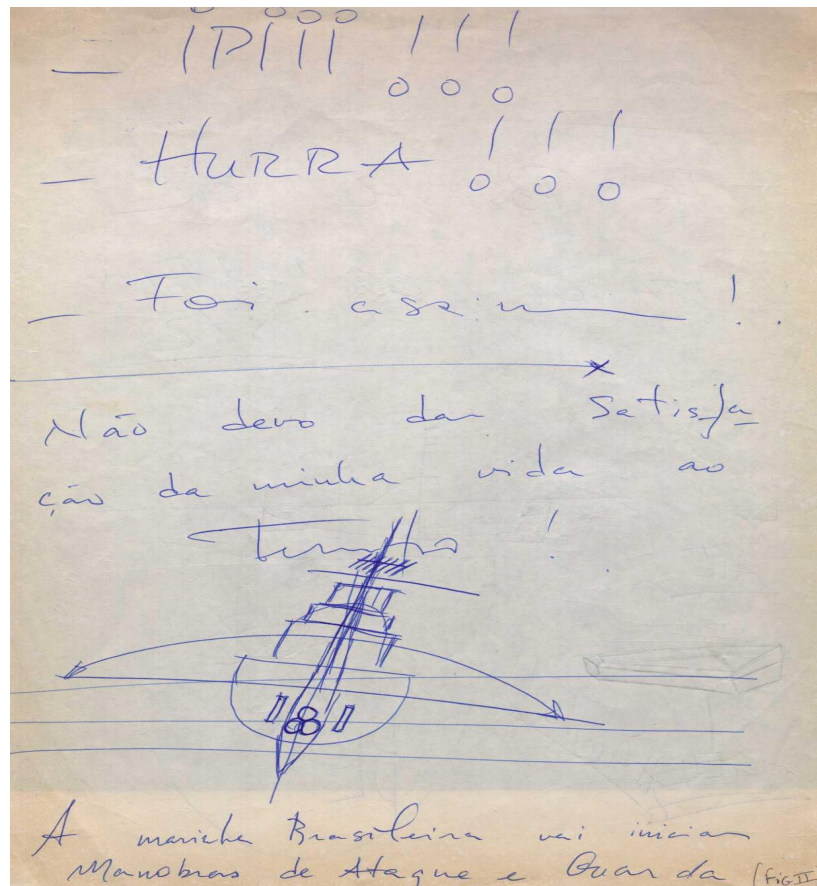 — iPiii !!!
— HURRA !!!
— Foi assim !.
Não devo dar satisfa
ção da minha vida ao
Tempo !
A marinha Brasileira vai iniciar
Manobras de Ataque e Guarda (FiG II